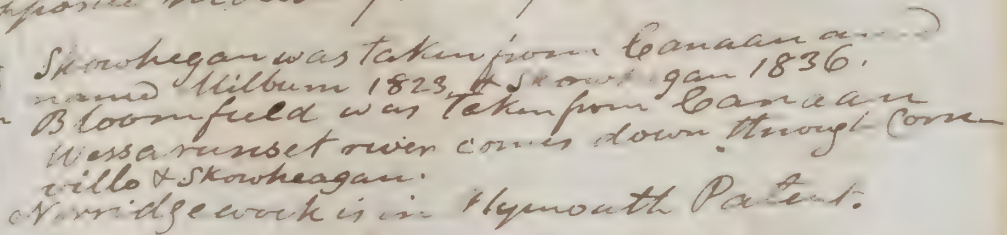 Skowhegan was taken from Canaan and
named Milburn 1823, & Skowhegan 1836.
Bloomfield was taken from Canaan
Wessarunset river comes down through Corn-
ville & Skowheagan.
Norridgewock is in Plymouth Patent.